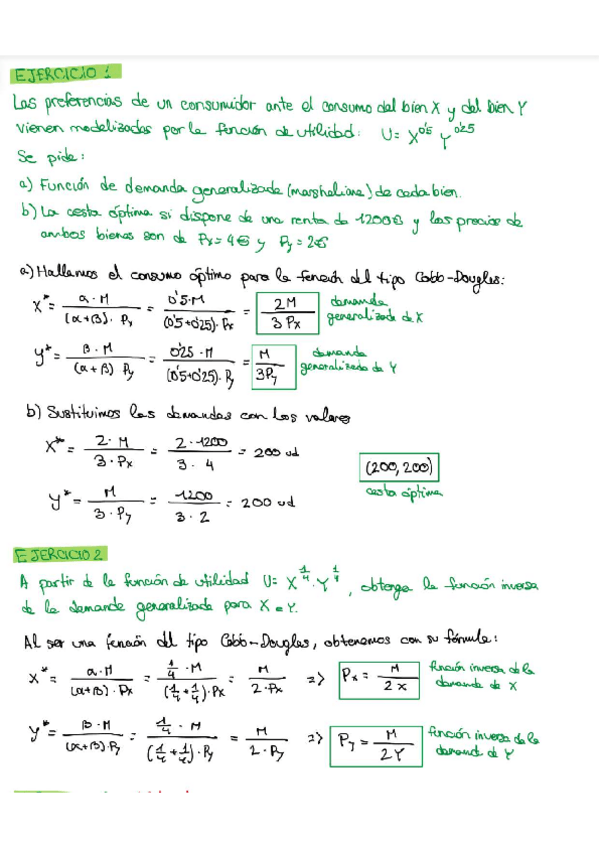 EJERCICIO 1
Las preferencias de un consumidor ante el consumo del bien X y del bien Y
vienen modelizadas por la función de utilidad: U = X^0'5 Y^0'25
Se pide:
a) Función de demanda generalizada (marshaliana) de cada bien.
b) La cesta óptima si dispone de una renta de 1200€ y los precios de
ambos bienes son de Px = 4€ y Py = 2€
a) Hallamos el consumo óptimo para la función del tipo Cobb-Douglas:
X* = α·M / (α+β)·Py = 0'5·M / (0'5+0'25)·Px = 2M / 3Px demanda generalizada de X
y* = β·M / (α+β) Py = 0'25·M / (0'5+0'25)·Py = M / 3Py demanda generalizada de Y
b) Sustituimos las demandas con los valores
X* = 2·M / 3·Px = 2·1200 / 3·4 = 200 ud
(200, 200)
cesta óptima
y* = M / 3·Py = 1200 / 3·2 = 200 ud
EJERCICIO 2
A partir de la función de utilidad U = X^1/4 · Y^1/4, obtenga la función inversa
de la demanda generalizada para X e Y.
Al ser una función del tipo Cobb-Douglas, obtenemos con su fórmula:
X* = α·M / (α+β)·Px = 1/4·M / (1/4+1/4)·Px = M / 2·Px => Px = M / 2x función inversa de la demanda de X
y* = β·M / (α+β)·Py = 1/4·M / (1/4+1/4)·Py = M / 2·Py => Py = M / 2Y función inversa de la demanda de Y